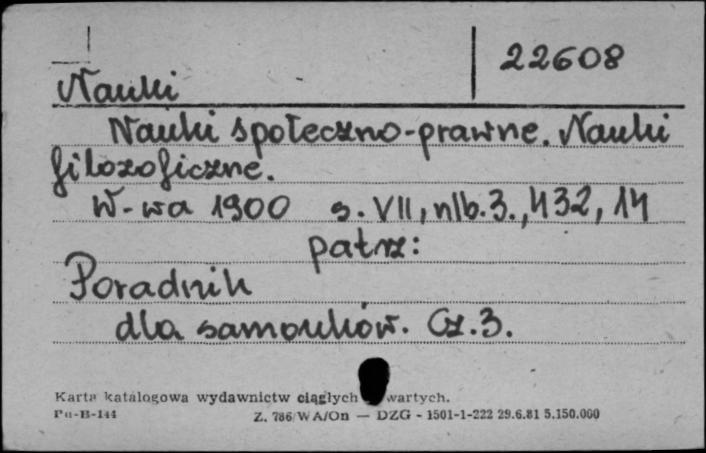 22608
Nauki
Nauki społeczno-prawne. Nauki
filozoficzne.
W-wa 1900 s. VII, nlb. 3., 432, 14
patrz:
Poradnik
dla samouków. Cz. 3.
Karta katalogowa wydawnictw ciągłych wartych.
Pu-B-144 Z. 786/WA/On — DZG - 1501-1-222 29.6.81 5.150.000